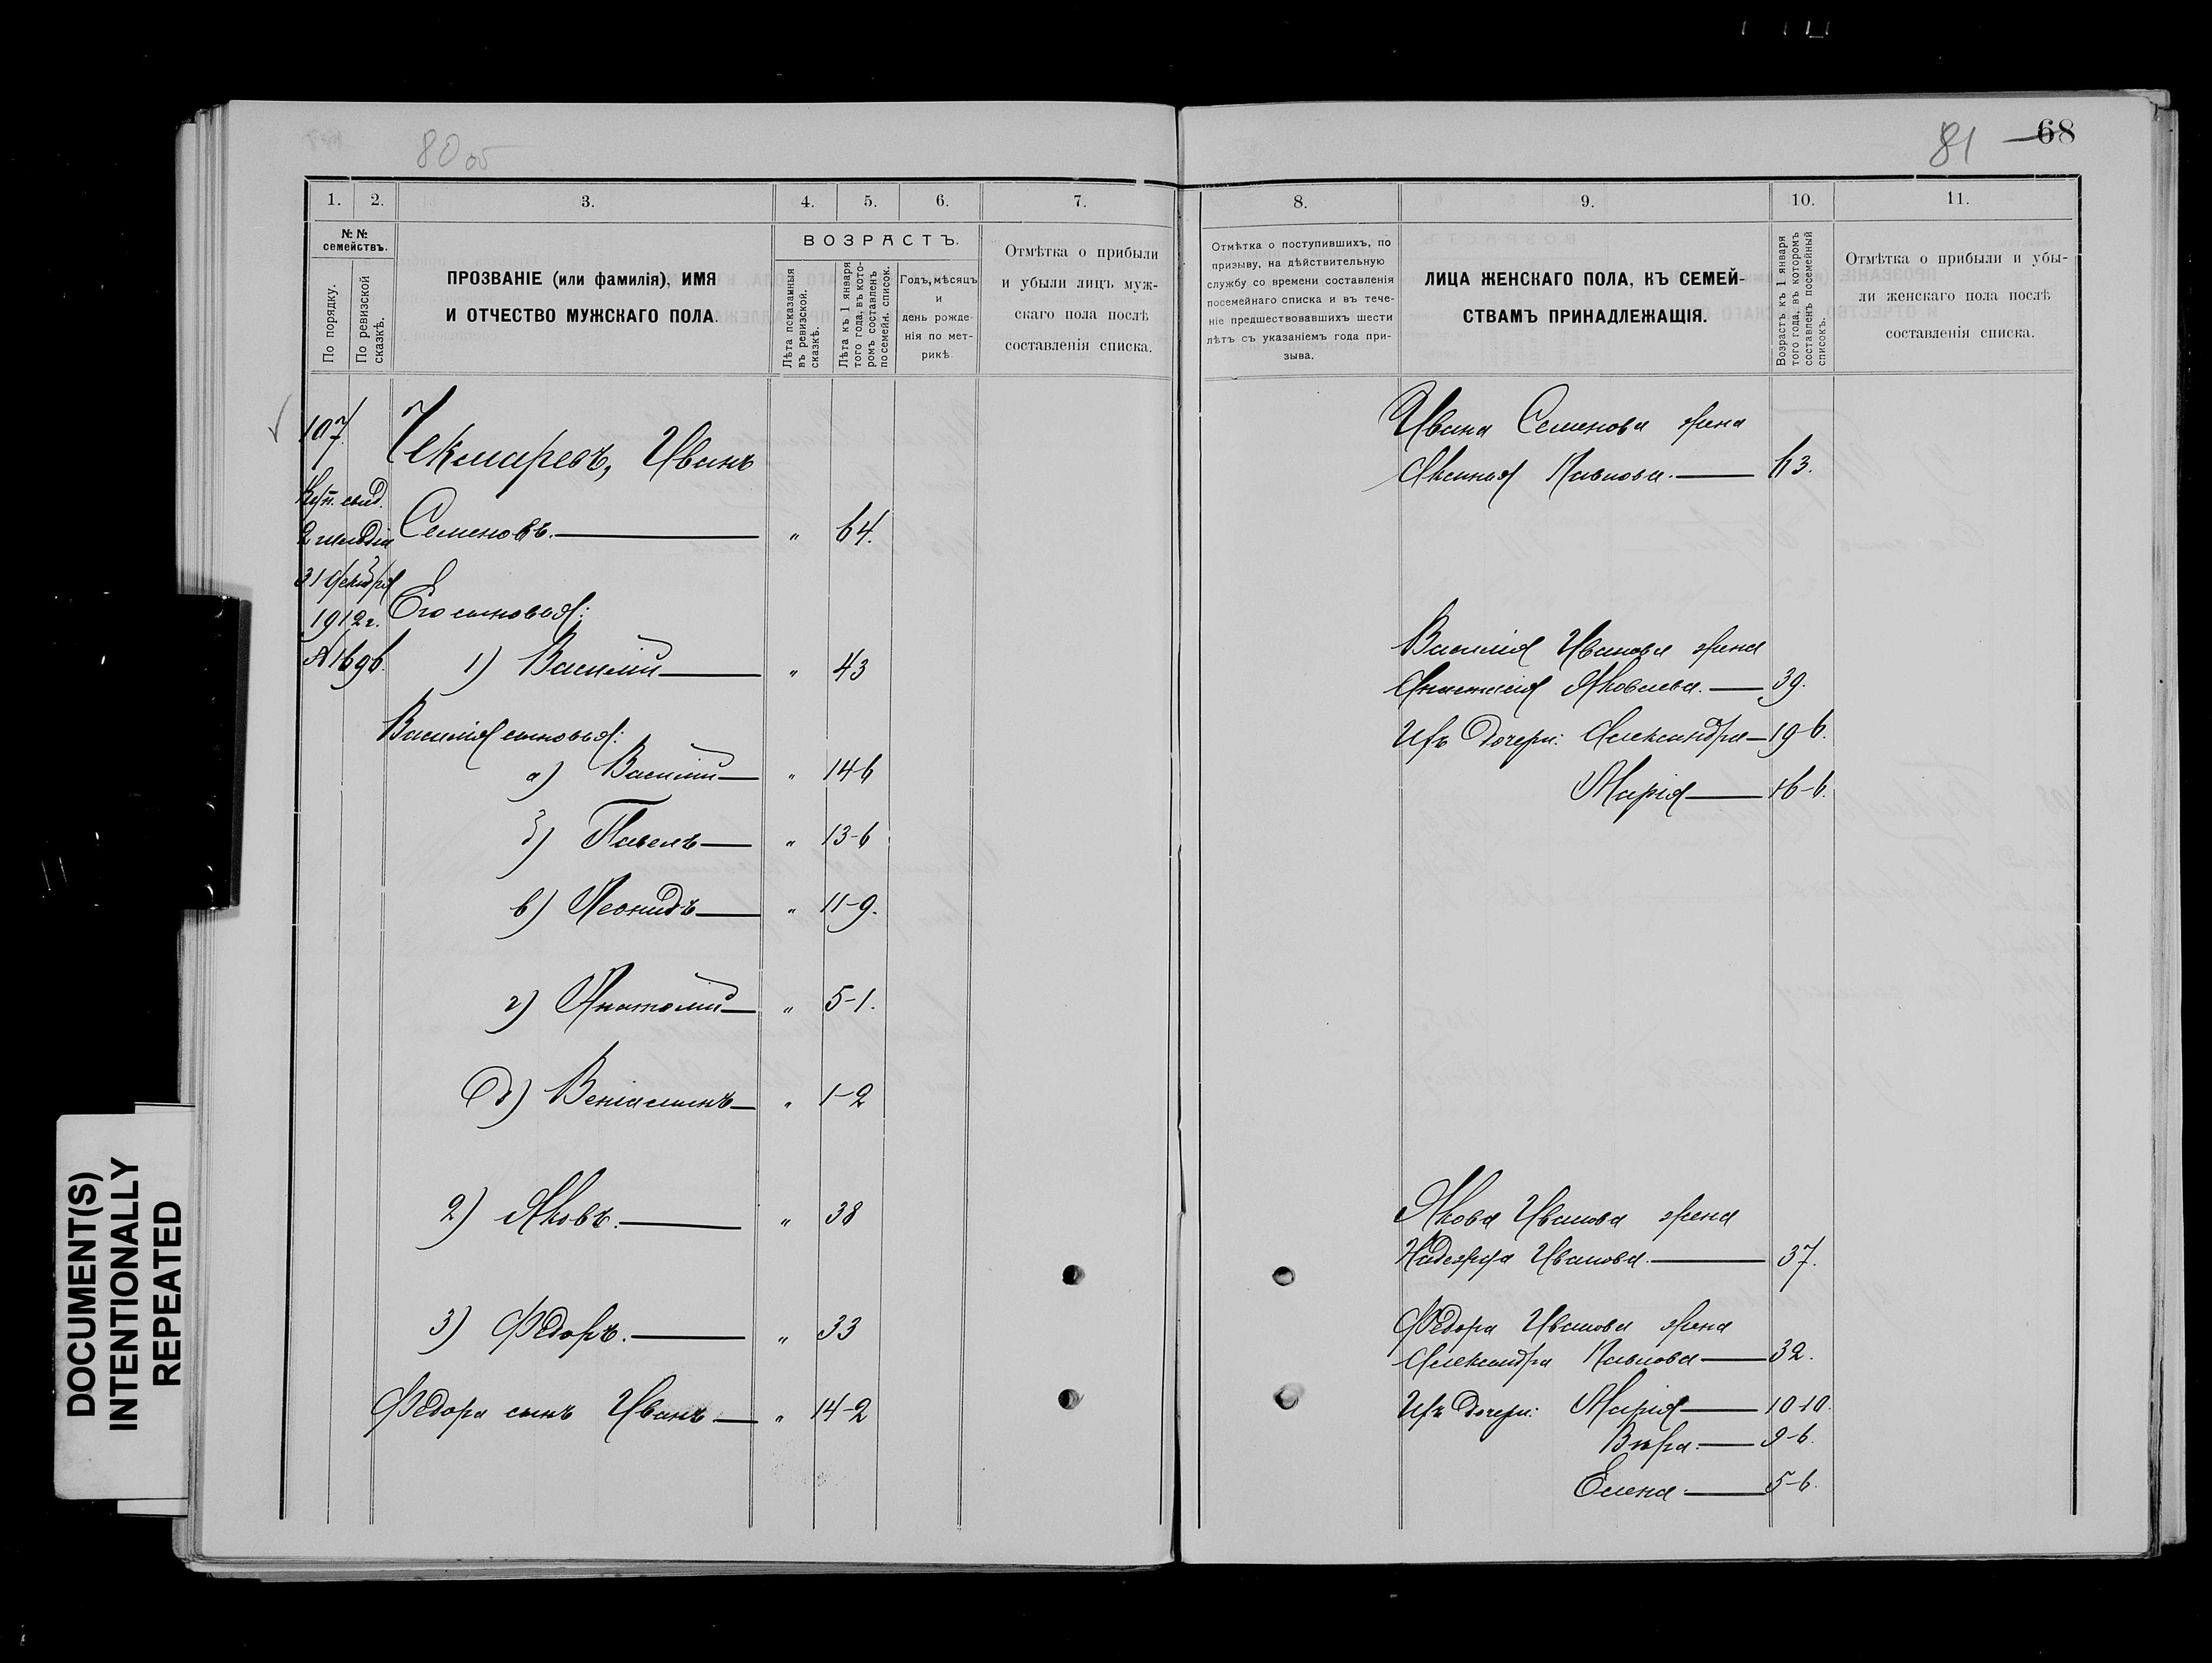 80 об
81 68
1. 2. 3. 4. 5. 6. 7.
№№ семействъ.
По порядку.
По ревизской сказкѣ.
ПРОЗВАНІЕ (или фамилія), ИМЯ
И ОТЧЕСТВО МУЖСКАГО ПОЛА.
ВОЗРАСТЪ.
Лѣта показанныя въ ревизской сказкѣ.
Лѣта къ 1 января того года, въ которомъ составленъ посемейн. список.
Годъ, мѣсяцъ
и
день рожде-
нія по мет-
рикѣ.
Отмѣтка о прибыли
и убыли лицъ муж-
скаго пола послѣ
составленія списка.
107
Чекмаревъ, Иванъ
Куп. свид.
2 гильдіи
Семеновъ. " 64.
31 декабря
1912 г.
Его сыновья:
№ 1696.
1) Василій " 43
Василія сыновья:
а) Василій " 14-6
б) Павелъ " 13-6
в) Леонидъ " 11-9.
г) Анатолій " 5-1.
д) Веніаминъ " 1-2
2) Яковъ. " 38
3) Ѳедоръ. " 33
Ѳедора сынъ Иванъ " 14-2
8. 9. 10. 11.
Отмѣтка о поступившихъ, по
призыву, на дѣйствительную
службу со времени составленія
посемейнаго списка и въ тече-
ніе предшествовавшихъ шести
лѣтъ съ указаніемъ года при-
зыва.
ЛИЦА ЖЕНСКАГО ПОЛА, КЪ СЕМЕЙ-
СТВАМЪ ПРИНАДЛЕЖАЩІЯ.
Возрастъ къ 1 января
того года, въ которомъ
составленъ посемейный
списокъ.
Отмѣтка о прибыли и убы-
ли женскаго пола послѣ
составленія списка.
Ивана Семенова жена
Аксинья Павлова. 63.
Василія Иванова жена
Анастасія Яковлева. 39.
Ихъ дочери: Александра 19-6.
Марія 16-6.
Якова Иванова жена
Надежда Иванова. 37.
Ѳедора Иванова жена
Александра Павлова 32.
Ихъ дочери: Марія 10-10.
Вѣра. 9-6.
Елена. 5-6.
DOCUMENT(S)
INTENTIONALLY
REPEATED